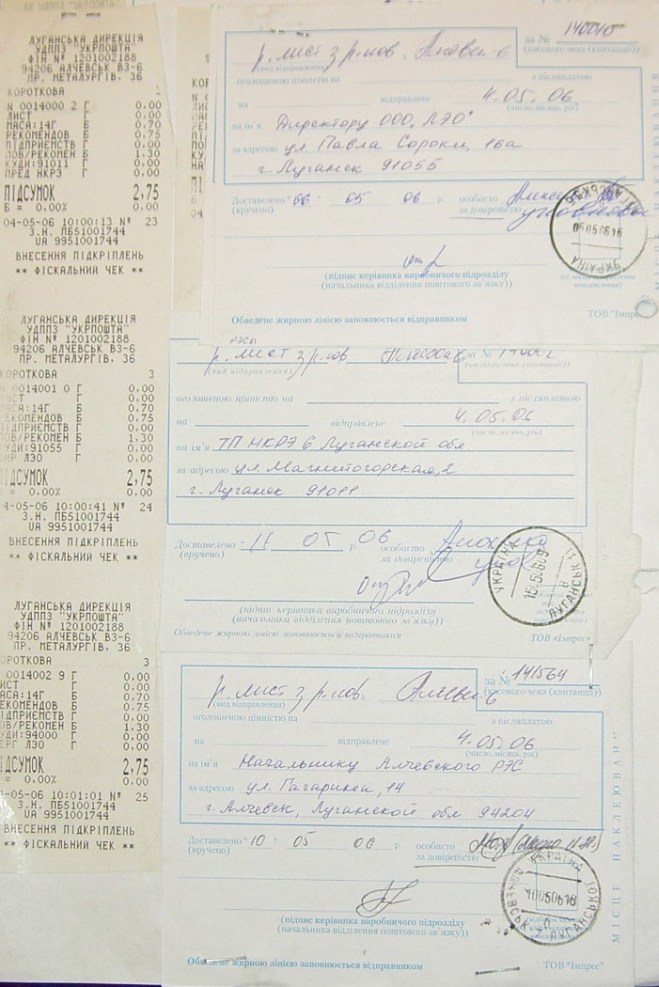 ЛУГАНСЬКА ДИРЕКЦІЯ
УДППЗ "УКРПОШТА"
ФІН № 1201002188
94206 АЛЧЕВСЬК ВЗ-6
ПР. МЕТАЛУРГІВ. 36
КОРОТКОВА 1
N 0014000 2 Г 0.00
ЛИСТ Г 0.00
МАСА:14Г Б 0.70
РЕКОМЕНДОВ Б 0.75
ПІДПРИЄМСТВ Г 0.00
ПОВ/РЕКОМЕН Б 1.30
КУДИ:91011 Г 0.00
ПРЕД НКРЭ Г 0.00
ПІДСУМОК 2,75
Б = 0.00% 0.00
04-05-06 10:00:13 № 23
З.Н. ПБ51001744
UA 9951001744
ВНЕСЕННЯ ПІДКРІПЛЕНЬ
** ФІСКАЛЬНИЙ ЧЕК **
ЛУГАНСЬКА ДИРЕКЦІЯ
УДППЗ "УКРПОШТА"
ФІН № 1201002188
94206 АЛЧЕВСЬК ВЗ-6
ПР. МЕТАЛУРГІВ. 36
КОРОТКОВА 3
0014001 0 Г 0.00
ИСТ Г 0.00
АСА:14Г Б 0.70
ЕКОМЕНДОВ Б 0.75
ІДПРИЄМСТВ Г 0.00
ОВ/РЕКОМЕН Б 1.30
УДИ:91055 Г 0.00
ИР ЛЭО Г 0.00
ІДСУМОК 2,75
= 0.00% 0.00
4-05-06 10:00:41 № 24
З.Н. ПБ51001744
UA 9951001744
ВНЕСЕННЯ ПІДКРІПЛЕНЬ
** ФІСКАЛЬНИЙ ЧЕК **
ЛУГАНСЬКА ДИРЕКЦІЯ
УДППЗ "УКРПОШТА"
ФІН № 1201002188
94206 АЛЧЕВСЬК ВЗ-6
ПР. МЕТАЛУРГІВ. 36
КОРОТКОВА 1
0014002 9 Г 0.00
ИСТ Г 0.00
АСА:14Г Б 0.70
ЕКОМЕНДОВ Б 0.75
ІДПРИЄМСТ Г 0.00
ОВ/РЕКОМЕН Б 1.30
УДИ:94000 Г 0.00
ЕРГ ЛЭО Г 0.00
ІДСУМОК 2,75
= 0.00% 0.00
-05-06 10:01:01 № 25
З.Н. ПБ51001744
UA 9951001744
ВНЕСЕННЯ ПІДКРІПЛЕНЬ
** ФІСКАЛЬНИЙ ЧЕК **
за №
(касового чека (квитанції))
р. лист з р.пов. Алчевск-6
(вид відправлення)
оголошеною цінністю на з післяплатою
на відправлене 4.05.06
(число, місяць, рік)
на ім'я Директору ООО "ЛЭО"
за адресою ул Павла Сороки, 16а
г. Луганск 91055
Доставлено "06" 05 06 р. особисто
(вручено) за довіреністю
УКРАЇНА
(підпис керівника виробничого підрозділу
(начальника відділення поштового зв'язку))
Обведене жирною лінією заповнюється відправником ТОВ "Імпрес"
р. лист з р.пов за №
(вид відправлення)
оголошеною цінністю на з післяплатою
на відправлене 4.05.06
на ім'я ТП НКРЭ в Луганской обл
за адресою ул. Магнитогорская, 2
г. Луганск 91011
Доставлено "11" 05 06 р. особисто
(вручено) за довіреністю
УКРАЇНА
(підпис керівника виробничого підрозділу
(начальника відділення поштового зв'язку))
Обведене жирною лінією заповнюється відправником ТОВ «Імпрес»
за № 141564
(касового чека (квитанції))
р. лист з р.пов. Алчевск-6
(вид відправлення)
оголошеною цінністю на з післяплатою
на відправлене 4.05.06
(число, місяць, рік)
на ім'я Начальнику Алчевского РЭС
за адресою ул. Гагарина, 14
г. Алчевск, Луганской обл 94204
Доставлено "10 05 06 р. особисто
(вручено) за довіреністю
УКРАЇНА
(підпис керівника виробничого підрозділу
(начальника відділення поштового зв'язку))
Обведене жирною лінією заповнюється відправником ТОВ "Імпрес"
МІСЦЕ НАКЛЕЮВАН